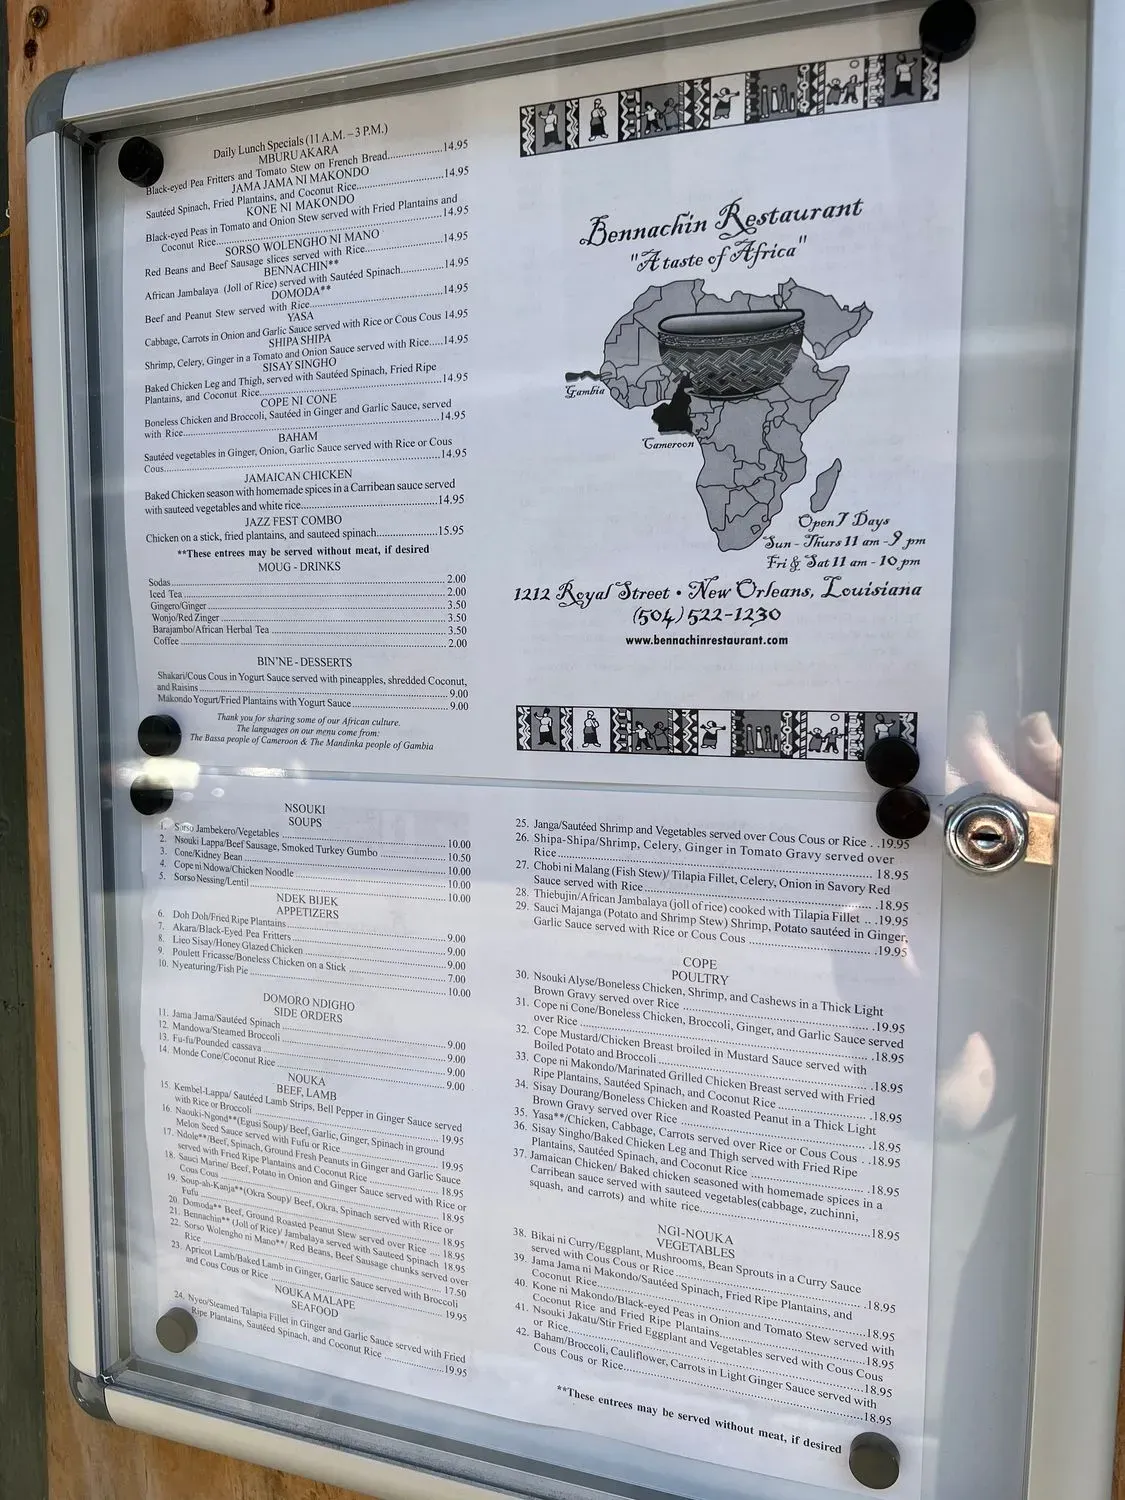 Daily Lunch Specials (11 A.M. – 3 P.M.)
MBURU AKARA
Black-eyed Pea Fritters and Tomato Stew on French Bread....................14.95
JAMA JAMA NI MAKONDO
Sautéed Spinach, Fried Plantains, and Coconut Rice..............................14.95
KONE NI MAKONDO
Black-eyed Peas in Tomato and Onion Stew served with Fried Plantains and
Coconut Rice..............................14.95
SORSO WOLENGHO NI MANO
Red Beans and Beef Sausage slices served with Rice....................14.95
BENNACHIN**
African Jambalaya (Joll of Rice) served with Sautéed Spinach...............14.95
DOMODA**
Beef and Peanut Stew served with Rice..............................14.95
YASA
Cabbage, Carrots in Onion and Garlic Sauce served with Rice or Cous Cous 14.95
SHIPA SHIPA
Shrimp, Celery, Ginger in a Tomato and Onion Sauce served with Rice.....14.95
SISAY SINGHO
Baked Chicken Leg and Thigh, served with Sautéed Spinach, Fried Ripe
Plantains, and Coconut Rice..............................14.95
COPE NI CONE
Boneless Chicken and Broccoli, Sautéed in Ginger and Garlic Sauce, served
with Rice..............................14.95
BAHAM
Sautéed vegetables in Ginger, Onion, Garlic Sauce served with Rice or Cous
Cous..............................14.95
JAMAICAN CHICKEN
Baked Chicken season with homemade spices in a Carribean sauce served
with sauteed vegetables and white rice..............................14.95
JAZZ FEST COMBO
Chicken on a stick, fried plantains, and sauteed spinach....................15.95
**These entrees may be served without meat, if desired
MOUG - DRINKS
Sodas..............................2.00
Iced Tea..............................2.00
Gingero/Ginger..............................3.50
Wonjo/Red Zinger..............................3.50
Barajambo/African Herbal Tea..............................3.50
Coffee..............................2.00
BIN'NE - DESSERTS
Shakari/Cous Cous in Yogurt Sauce served with pineapples, shredded Coconut,
and Raisins..............................9.00
Makondo Yogurt/Fried Plantains with Yogurt Sauce....................9.00
Thank you for sharing some of our African culture.
The languages on our menu come from:
The Bassa people of Cameroon & The Mandinka people of Gambia
Bennachin Restaurant
"A taste of Africa"
Gambia
Cameroon
Open 7 Days
Sun - Thurs 11 am - 9 pm
Fri & Sat 11 am - 10 pm
1212 Royal Street • New Orleans, Louisiana
(504) 522-1230
www.bennachinrestaurant.com
NSOUKI
SOUPS
1. Sorso Jambekero/Vegetables ..............................10.00
2. Nsouki Lappa/Beef Sausage, Smoked Turkey Gumbo ...............10.50
3. Cone/Kidney Bean ..............................10.00
4. Cope ni Ndowa/Chicken Noodle ..............................10.00
5. Sorso Nessing/Lentil ..............................10.00
NDEK BIJEK
APPETIZERS
6. Doh Doh/Fried Ripe Plantains ..............................9.00
7. Akara/Black-Eyed Pea Fritters ..............................9.00
8. Lieo Sisay/Honey Glazed Chicken ..............................9.00
9. Poulett Fricasse/Boneless Chicken on a Stick ....................7.00
10. Nyeaturing/Fish Pie ..............................10.00
DOMORO NDIGHO
SIDE ORDERS
11. Jama Jama/Sautéed Spinach ..............................9.00
12. Mandowa/Steamed Broccoli ..............................9.00
13. Fu-fu/Pounded cassava ..............................9.00
14. Monde Cone/Coconut Rice ..............................9.00
NOUKA
BEEF, LAMB
15. Kembel-Lappa/ Sautéed Lamb Strips, Bell Pepper in Ginger Sauce served
with Rice or Broccoli ..............................19.95
16. Naouki-Ngond**(Egusi Soup)/ Beef, Garlic, Ginger, Spinach in ground
Melon Seed Sauce served with Fufu or Rice ....................19.95
17. Ndole**/Beef, Spinach, Ground Fresh Peanuts in Ginger and Garlic Sauce
served with Fried Ripe Plantains and Coconut Rice ....................18.95
18. Sauci Marine/ Beef, Potato in Onion and Ginger Sauce served with Rice or
Cous Cous ..............................18.95
19. Soup-ah-Kanja**(Okra Soup)/ Beef, Okra, Spinach served with Rice or
Fufu ..............................18.95
20. Domoda** Beef, Ground Roasted Peanut Stew served over Rice .... 18.95
21. Bennachin** (Joll of Rice)/ Jambalaya served with Sauteed Spinach 18.95
22. Sorso Wolengho ni Mano**/ Red Beans, Beef Sausage chunks served over
Rice ..............................17.50
23. Apricot Lamb/Baked Lamb in Ginger, Garlic Sauce served with Broccoli
and Cous Cous or Rice ..............................19.95
NOUKA MALAPE
SEAFOOD
24. Nyeo/Steamed Talapia Fillet in Ginger and Garlic Sauce served with Fried
Ripe Plantains, Sautéed Spinach, and Coconut Rice ....................19.95
25. Janga/Sautéed Shrimp and Vegetables served over Cous Cous or Rice . .19.95
26. Shipa-Shipa/Shrimp, Celery, Ginger in Tomato Gravy served over
Rice..............................18.95
27. Chobi ni Malang (Fish Stew)/ Tilapia Fillet, Celery, Onion in Savory Red
Sauce served with Rice..............................18.95
28. Thiebujin/African Jambalaya (joll of rice) cooked with Tilapia Fillet .. .19.95
29. Sauci Majanga (Potato and Shrimp Stew) Shrimp, Potato sautéed in Ginger,
Garlic Sauce served with Rice or Cous Cous ....................19.95
COPE
POULTRY
30. Nsouki Alyse/Boneless Chicken, Shrimp, and Cashews in a Thick Light
Brown Gravy served over Rice ..............................19.95
31. Cope ni Cone/Boneless Chicken, Broccoli, Ginger, and Garlic Sauce served
over Rice ..............................18.95
32. Cope Mustard/Chicken Breast broiled in Mustard Sauce served with
Boiled Potato and Broccoli..............................18.95
33. Cope ni Makondo/Marinated Grilled Chicken Breast served with Fried
Ripe Plantains, Sautéed Spinach, and Coconut Rice ....................18.95
34. Sisay Dourang/Boneless Chicken and Roasted Peanut in a Thick Light
Brown Gravy served over Rice ..............................18.95
35. Yasa**/Chicken, Cabbage, Carrots served over Rice or Cous Cous . .18.95
36. Sisay Singho/Baked Chicken Leg and Thigh served with Fried Ripe
Plantains, Sautéed Spinach, and Coconut Rice ....................18.95
37. Jamaican Chicken/ Baked chicken seasoned with homemade spices in a
Carribean sauce served with sauteed vegetables(cabbage, zuchinni,
squash, and carrots) and white rice..............................18.95
NGI-NOUKA
VEGETABLES
38. Bikai ni Curry/Eggplant, Mushrooms, Bean Sprouts in a Curry Sauce
served with Cous Cous or Rice ..............................18.95
39. Jama Jama ni Makondo/Sautéed Spinach, Fried Ripe Plantains, and
Coconut Rice..............................18.95
40. Kone ni Makondo/Black-eyed Peas in Onion and Tomato Stew served with
Coconut Rice and Fried Ripe Plantains..............................18.95
41. Nsouki Jakatu/Stir Fried Eggplant and Vegetables served with Cous Cous
or Rice..............................18.95
42. Baham/Broccoli, Cauliflower, Carrots in Light Ginger Sauce served with
Cous Cous or Rice..............................18.95
**These entrees may be served without meat, if desired